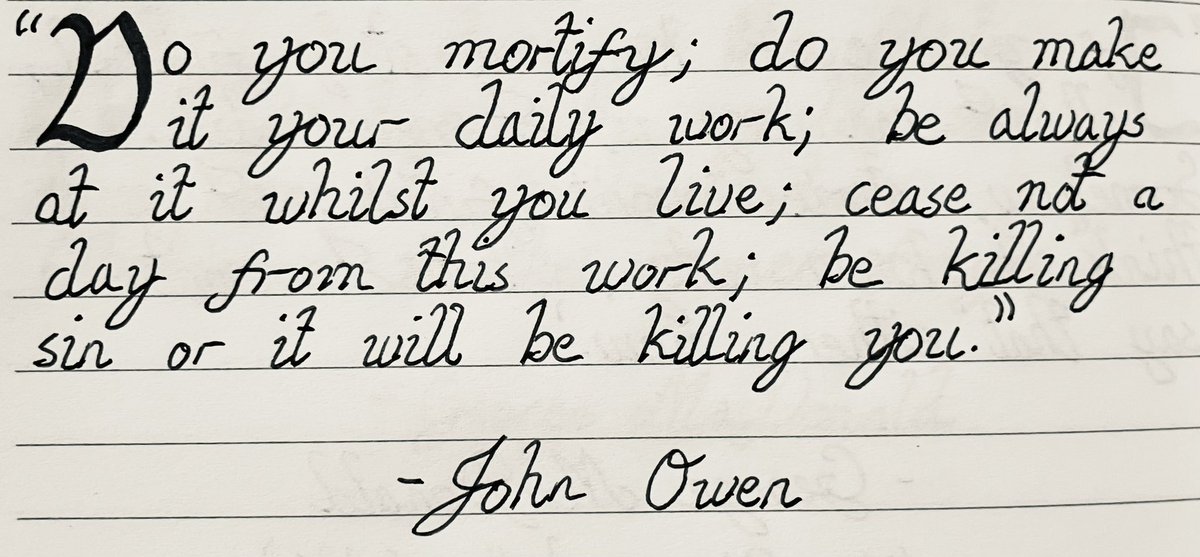 “Do you mortify; do you make
it your daily work; be always
at it whilst you live; cease not a
day from this work; be killing
sin or it will be killing you.”
-John Owen